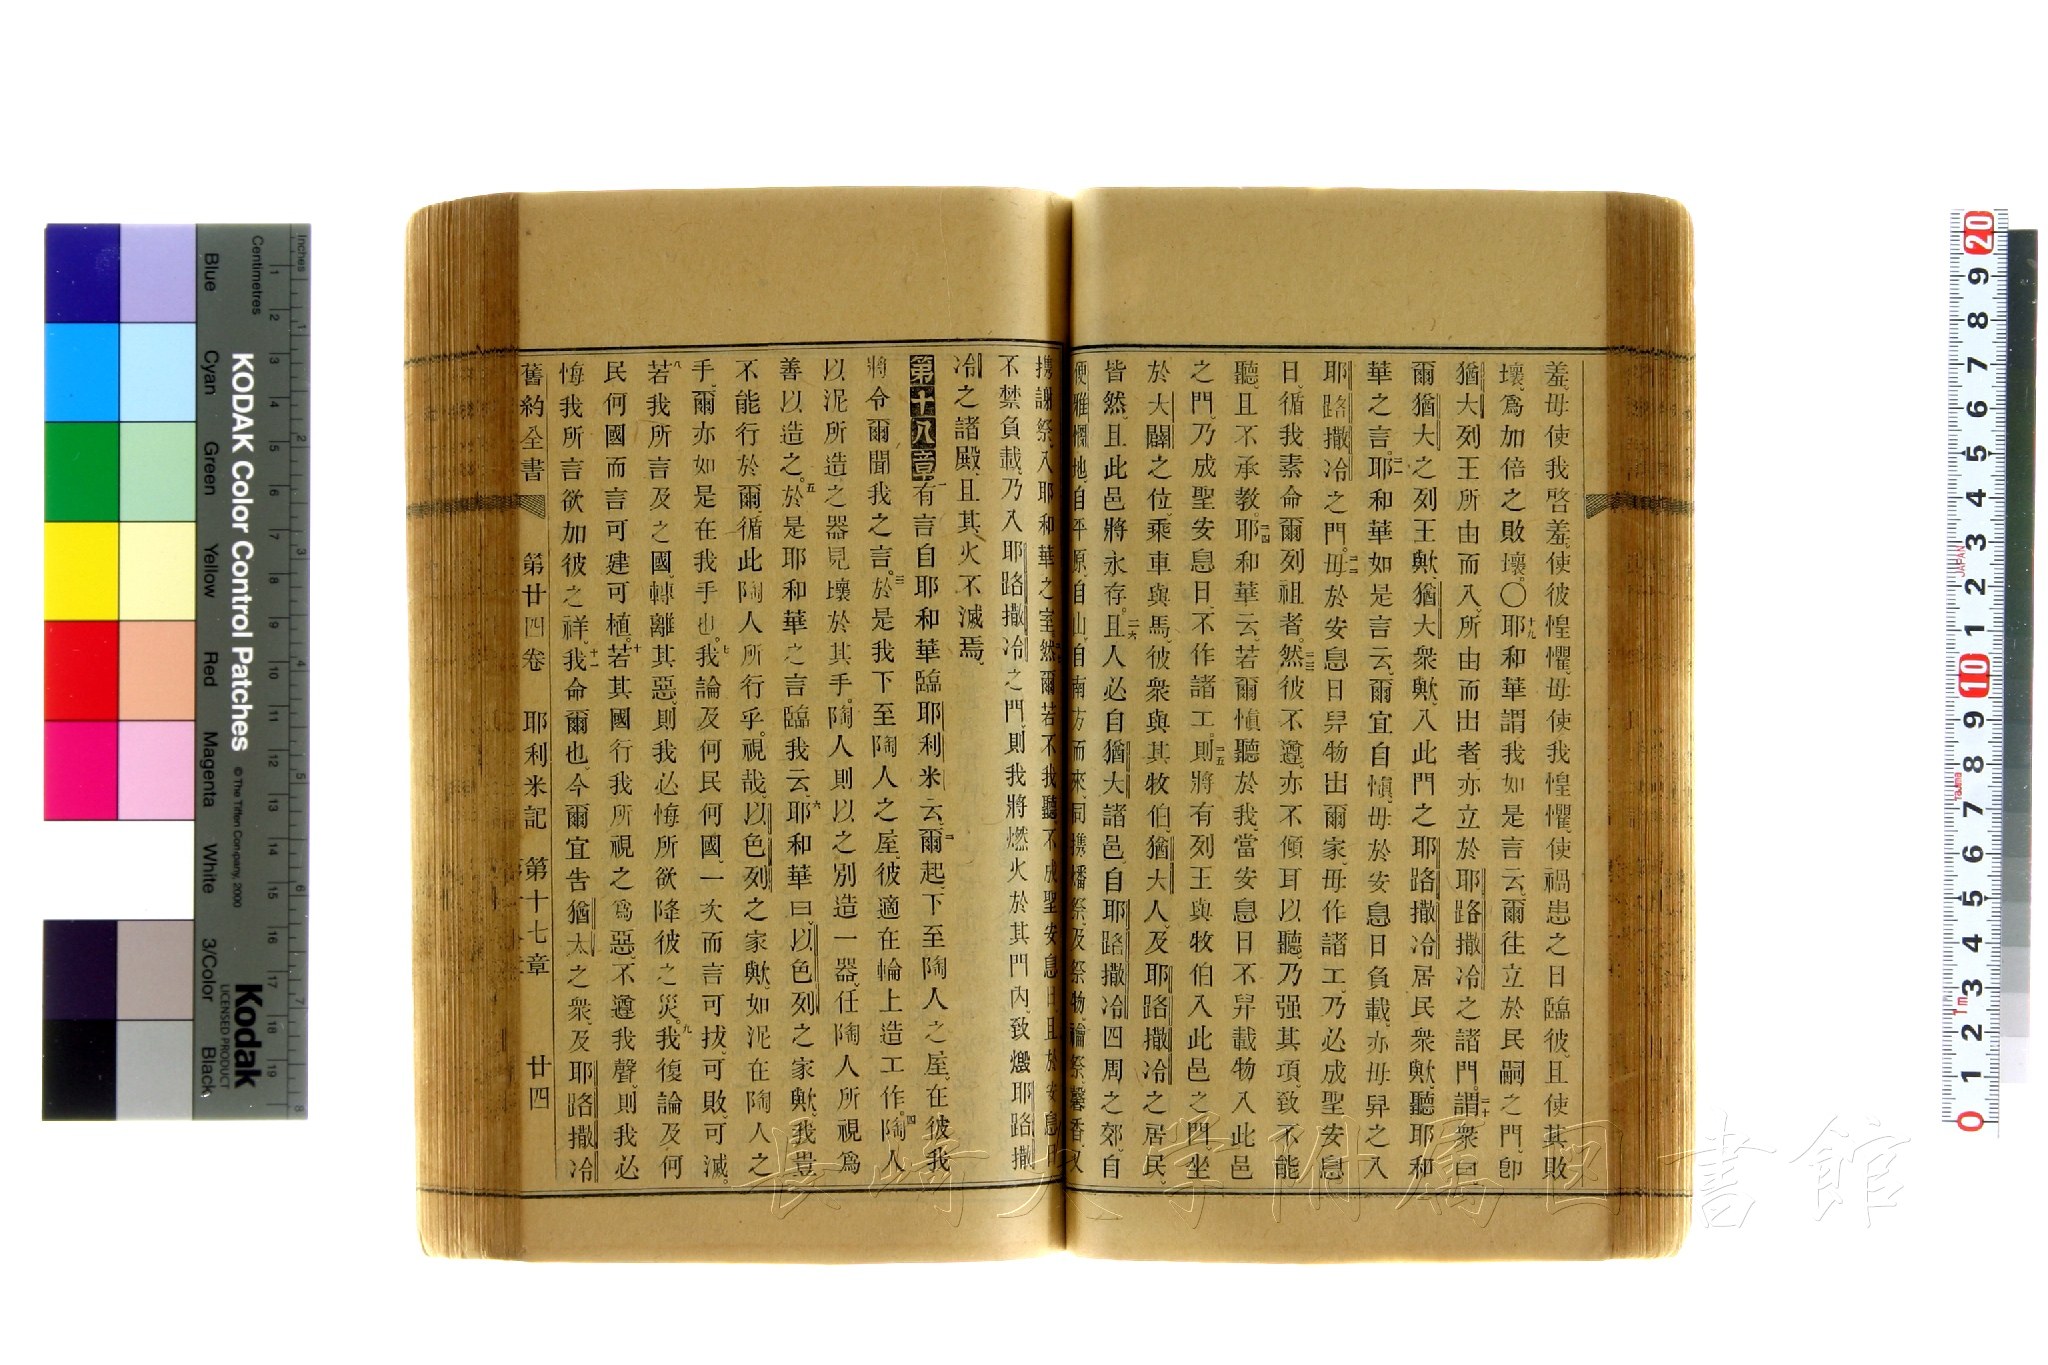 羞、毋使我啓羞、使彼惶懼、毋使我惶懼、使禍患之日臨彼、且使其敗
壞、爲加倍之敗壞。〇十九耶和華謂我如是言云、爾往立於民嗣之門、卽
猶大列王所由而入、所由而出者、亦立於耶路撒冷之諸門。二十謂衆曰、
爾猶大之列王歟、猶大衆歟、入此門之耶路撒冷居民衆歟、聽耶和
華之言。二一耶和華如是言云、爾宜自愼、毋於安息日負載、亦毋舁之入
耶路撒冷之門。二二毋於安息日舁物出爾家、毋作諸工、乃必成聖安息
日、循我素命爾列祖者。二三然彼不遵、亦不傾耳以聽、乃强其項、致不能
聽、且不承教。二四耶和華云、若爾愼聽於我、當安息日不舁載物入此邑
之門、乃成聖安息日、不作諸工。二五則將有列王與牧伯入此邑之門、坐
於大闢之位、乘車與馬、彼衆與其牧伯、猶大人、及耶路撒冷之居民、
皆然、且此邑將永存。二六且人必自猶大諸邑、自耶路撒冷四周之郊、自
便雅憫地、自平原、自山、自南方而來、同攜燔祭、及祭物、禴祭、馨香、又
攜謝祭、入耶和華之室。然爾若不我聽、不成聖安息日、且於安息日
不禁負載、乃入耶路撒冷之門、則我將燃火於其門內、致燬耶路撒
冷之諸殿、且其火不滅焉。
第十八章 一有言自耶和華臨耶利米云、二爾起、下至陶人之屋、在彼我
將令爾聞我之言。三於是我下至陶人之屋、彼適在輪上造工作。四陶人
以泥所造之器、見壞於其手、陶人則以之別造一器、任陶人所視爲
善以造之。五於是耶和華之言臨我云、六耶和華曰、以色列之家歟、我豈
不能行於爾、循此陶人所行乎、視哉、以色列之家歟、如泥在陶人之
手、爾亦如是在我手也。七我論及何民何國、一次而言可拔、可敗、可滅。
八若我所言及之國、轉離其惡、則我必悔所欲降彼之災。九我復論及何
民何國、而言可建可植。十若其國行我所視之爲惡、不遵我聲、則我必
悔我所言欲加彼之祥。十一我命爾也、今爾宜吿猶太之衆、及耶路撒冷
舊約全書 第廿四卷 耶利米記 第十七章 廿四
KODAK Color Control Patches
© The Tiffen Company, 2000
Kodak
LICENSED PRODUCT
Inches
Centimetres
Blue Cyan Green Yellow Red Magenta White 3/Color Black
1 2 3 4 5 6 7 8 9 10 11 12 13 14 15 16 17 18 19
1 2 3 4 5 6 7 8
20 9 8 7 6 5 4 3 2 1 10 9 8 7 6 5 4 3 2 1 0
JAPAN
長崎大学附属図書館